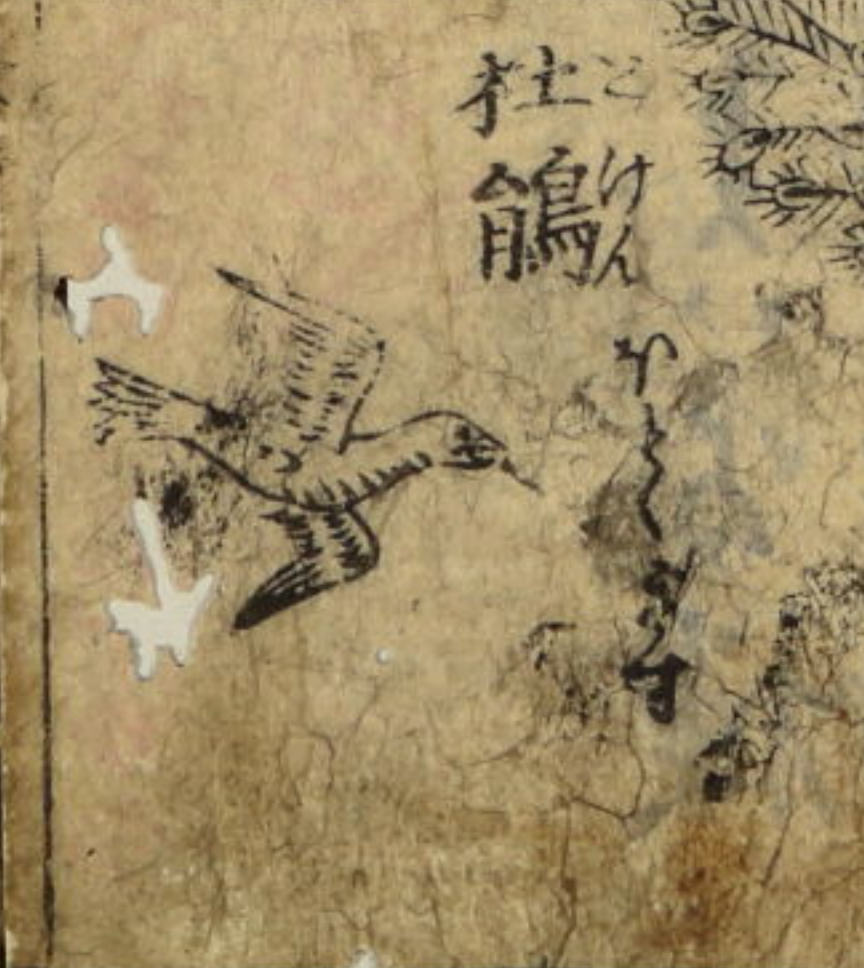 杜鵑
とけん
ほとゝぎす